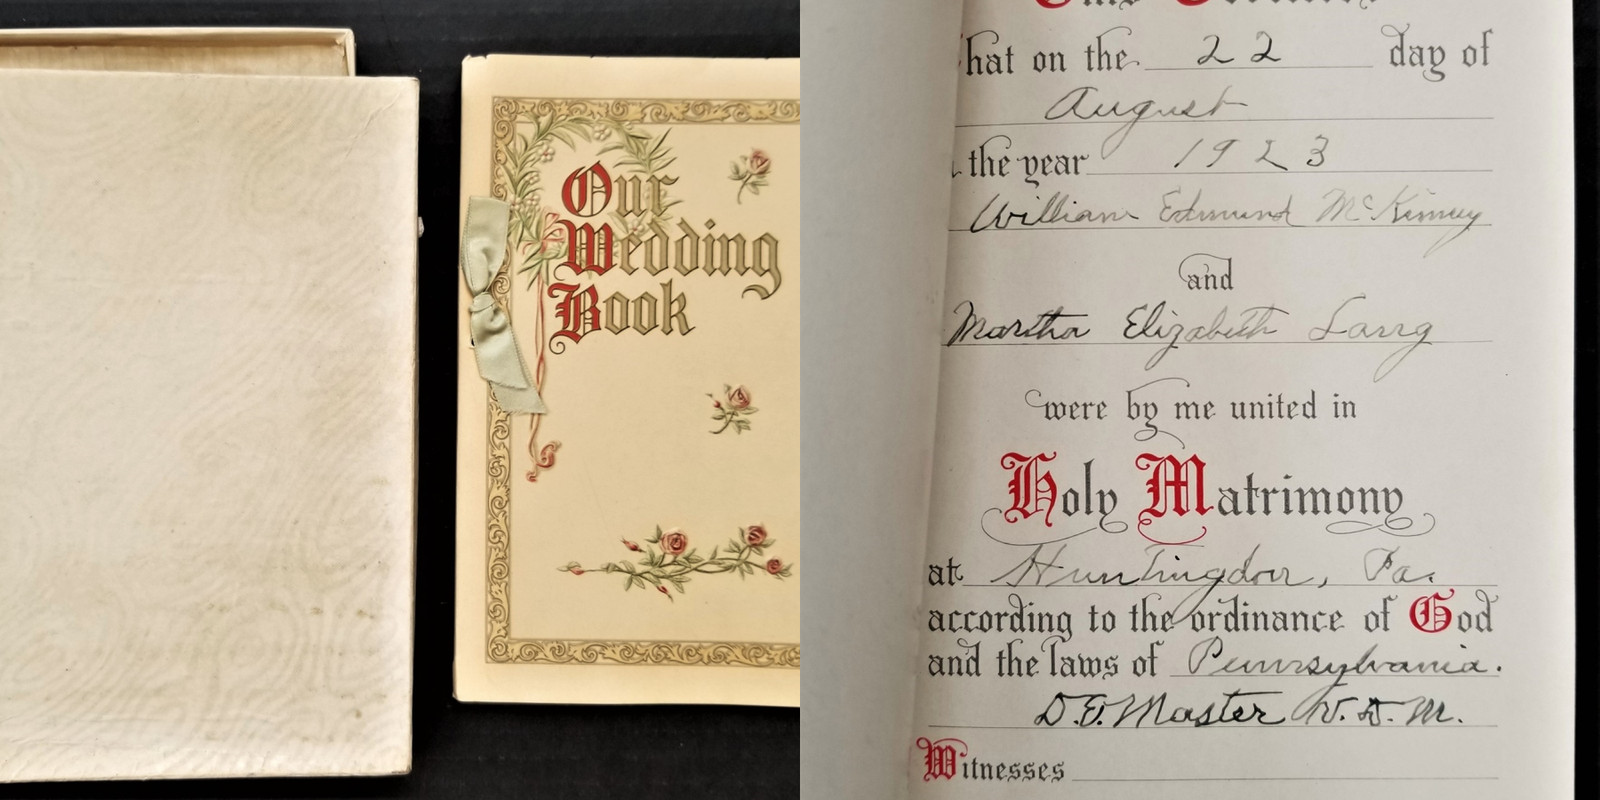 Our
Wedding
Book
hat on the 22 day of
August
the year 1923
William Edmund McKinney
and
Martha Elizabeth
were by me united in
Holy Matrimony
at Huntingdon, Pa.
according to the ordinance of God
and the laws of Pennsylvania.
Master V. D. M.
Witnesses